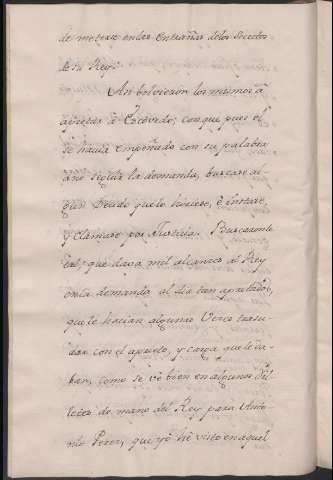 de meterse en las Entrañas de los Secretos
de su Rey.
An bolvieron los mismos à
apretar à Escovedo; con que pues el
se havia empeñado con su palabra
à no seguir la demanda, buscase al
gun Deudo que lo hiciese, è instase,
y clamase por Justicia. Buscaronle
tal, que dava mil alcances al Rey
en la demanda al dia tan apretados,
que le hacian algunas Veces trasu
dar con el aprieto, y carga que le da
ban, como se vè bien en algunos Vil
letes de mano del Rey para Anto
nio Perez, que yo hè visto en aquel